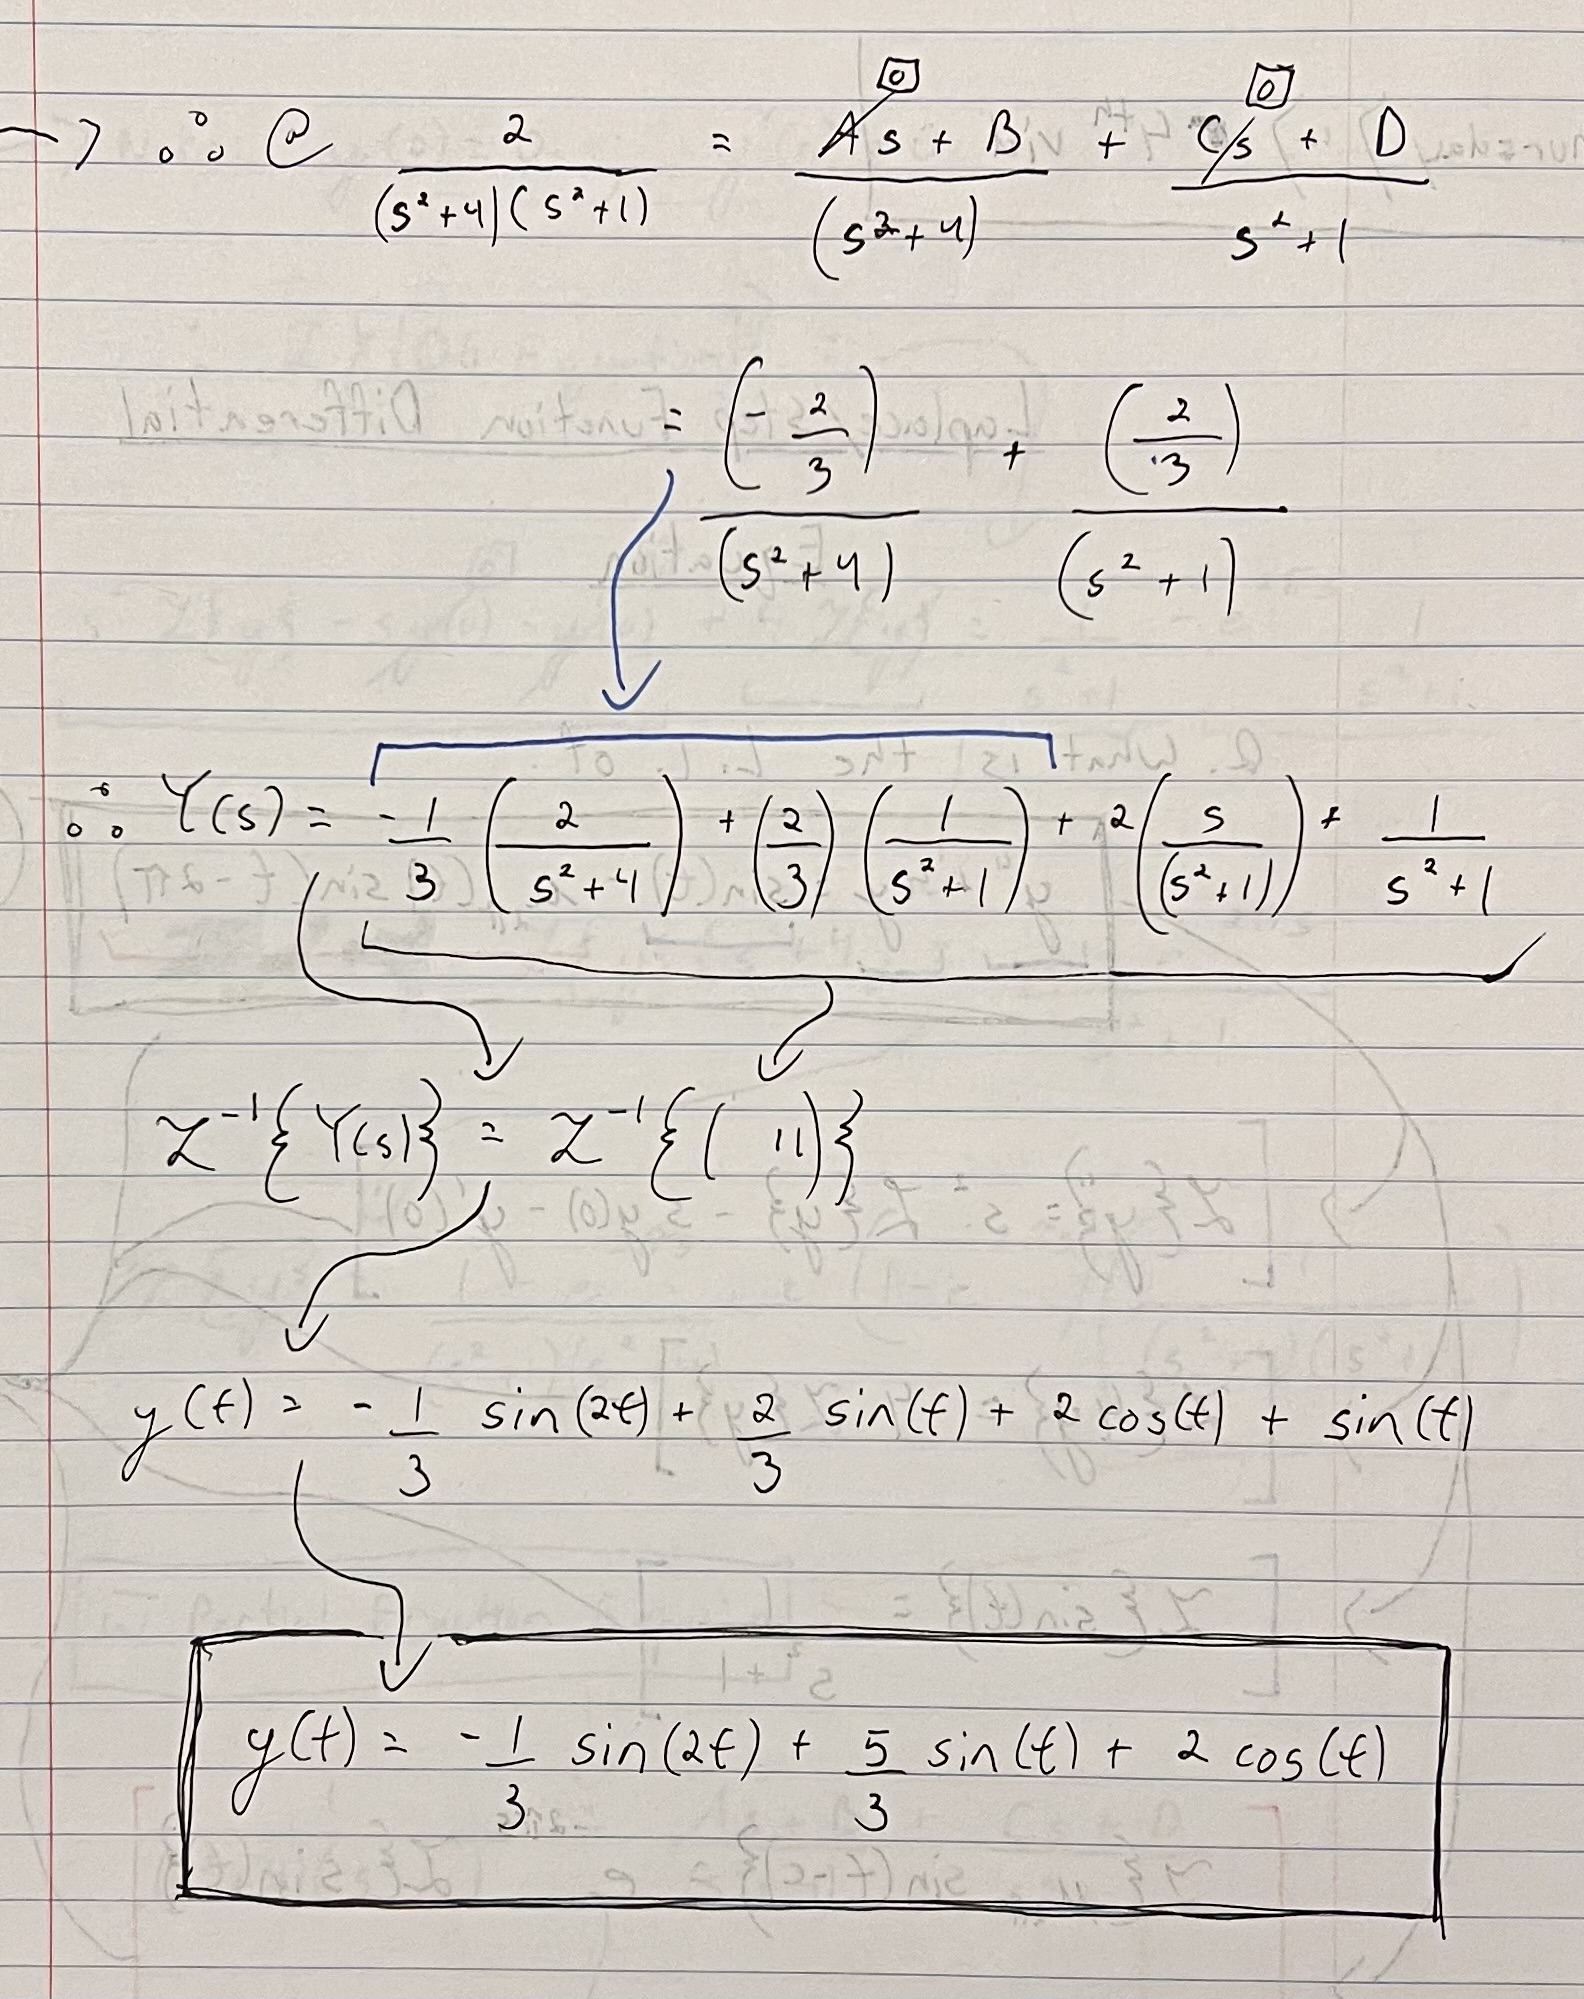 → ∴ @ 2/((s²+4)(s²+1)) = (As + B)/(s²+4) + (Cs + D)/(s²+1)
0 0
= (-2/3)/(s²+4) + (2/3)/(s²+1)
∴ Y(s) = -1/3 (2/(s²+4)) + (2/3)(1/(s²+1)) + 2(s/(s²+1)) + 1/(s²+1)
ℒ⁻¹{Y(s)} = ℒ⁻¹{( 11)}
y(t) = -1/3 sin(2t) + 2/3 sin(t) + 2 cos(t) + sin(t)
y(t) = -1/3 sin(2t) + 5/3 sin(t) + 2 cos(t)